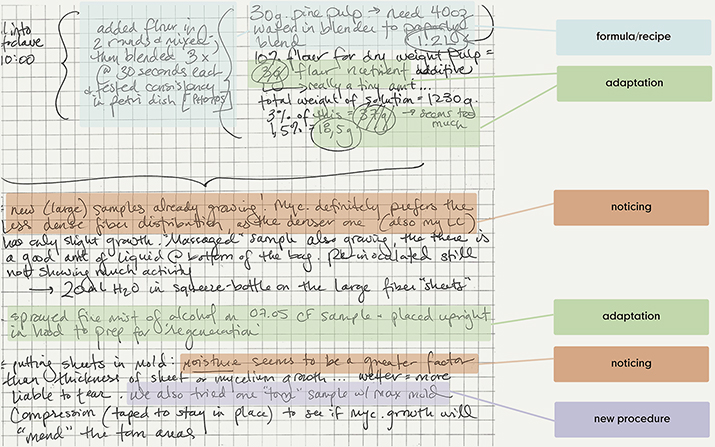 into
10:00
added flour in
2 rounds & mixed,
then blended 3x
@ 30 seconds each
& tested consistency
in petri dish [PHOTOS]
30g. pine pulp → need 400g
water in blender to
blend
1:210g
10% flour for dry weight pulp =
3g flour nutrient additive
→ really a tiny amt...
total weight of solution = 1230g.
3% of this = 37g → seems too
much
1,5% = 18,5g
formula/recipe
adaptation
new (large) samples already growing! Myc. definitely prefers the
less dense fiber distribution, as the denser one (also my LC)
has only slight growth. "Massaged" sample also growing, tho there is
a good amt of liquid @ bottom of the bag. Re-inoculated still
not showing much activity
→ 20mL H2O in squeeze-bottle on the large fiber "sheets"
noticing
sprayed fine mist of alcohol on 07.05 CF sample + placed upright
in hood to prep for 'regeneration'
adaptation
putting sheets in mold: moisture seems to be a greater factor
than thickness of sheet or mycelium growth... wetter = more
liable to tear. We also tried one "torn" sample w/ max mold
compression (taped to stay in place) to see if myc. growth will
"mend" the torn areas
noticing
new procedure